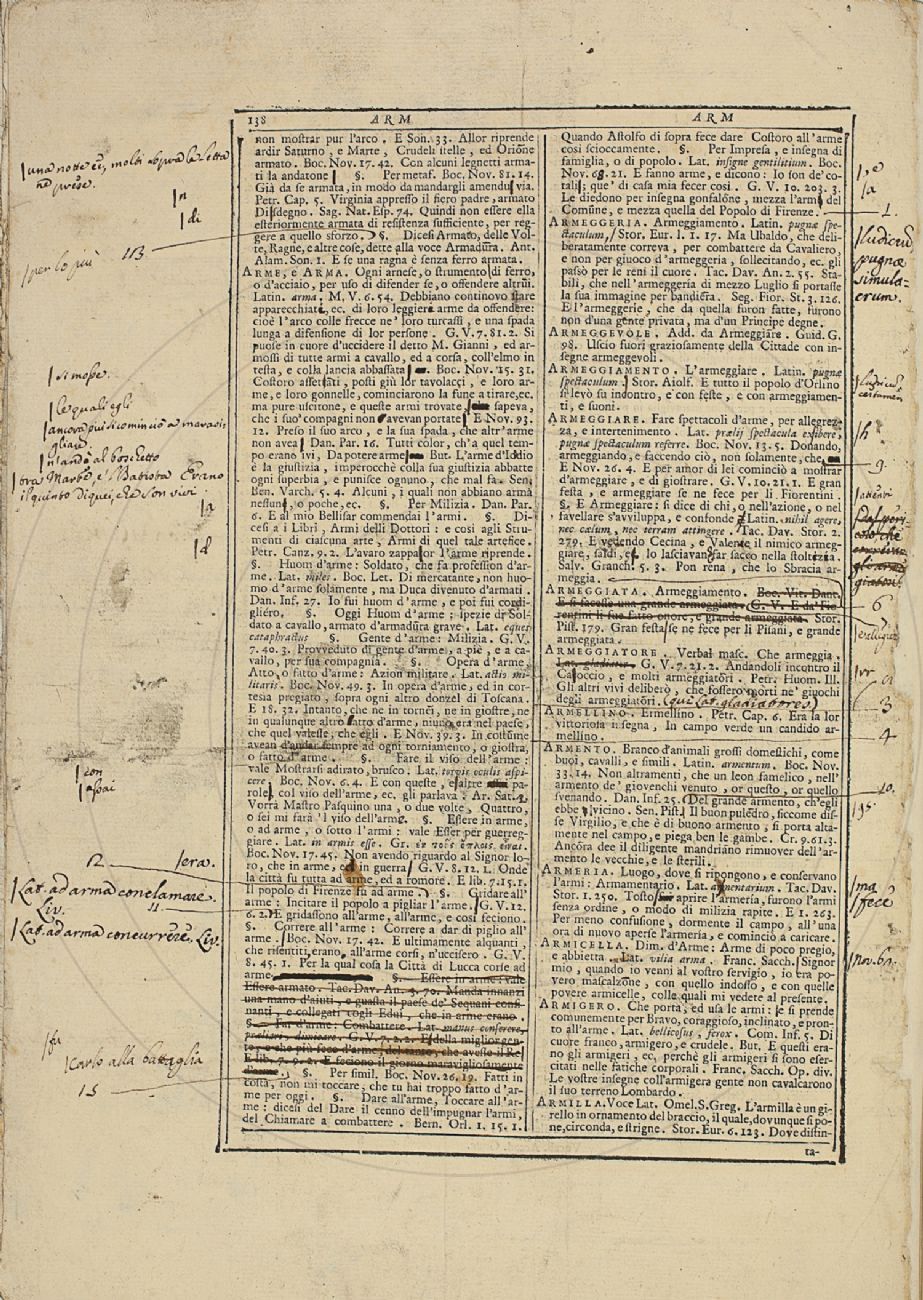 138 ARM ARM
non mostrar pur l'arco. E Son. 33. Allor riprende
ardir Saturno, e Marte, Crudeli stelle, ed Orione
armato. Boc. Nov. 17. 42. Con alcuni legnetti arma-
ti la andatone §. Per metaf. Boc. Nov. 81. 14.
Già da se armata, in modo da mandargli amendu via.
Petr. Cap. 5. Virginia appresso il fiero padre, armato
Disdegno. Sag. Nat. Esp. 74. Quindi non essere ella
esteriormente armata di resistenza sufficiente, per reg-
gere a quello sforzo. §. Dicesi Armato, delle Vol-
te, Ragne, e altre cose, dette alla voce Armadura. Ant.
Alam. Son. 1. E se una ragna è senza ferro armata.
ARME, e ARMA. Ogni arnese, o strumento di ferro,
o d'acciaio, per uso di difender se, o offendere altrui.
Latin. arma. M. V. 6. 54. Debbiano continovo stare
apparecchiati, ec. di loro leggiere arme da offendere:
cioè l'arco colle frecce ne' loro turcassi, e una spada
lunga a difensione di lor persone. G. V. 7. 81. 2. Si
puose in cuore d'uccidere il detto M. Gianni, ed ar-
mossi di tutte armi a cavallo, ed a corsa, coll'elmo in
testa, e colla lancia abbassata ec. Boc. Nov. 15. 31.
Costoro assettati, posti giù lor tavolacci, e loro ar-
me, e loro gonnelle, cominciarono la fune a tirare, ec.
ma pure uscitone, e queste armi trovate, sapeva,
che i suo' compagni non avevan portate E Nov. 93.
12. Presso il suo arco, e la sua spada, che altr'arme
non avea Dan. Par. 16. Tutti color, ch'a quel tem-
po erano ivi, Da potere arme But. L'arme d'Iddio
è la giustizia, imperocchè colla sua giustizia abbatte
ogni superbia, e punisce ognuno, che mal fa. Sen.
Ben. Varch. 5. 4. Alcuni, i quali non abbiano arma
nessuna, o poche, ec. §. Per Milizia. Dan. Par.
6. E al mio Bellisar commendai l'armi. §. Di-
cesi a i Libri, Armi delli Dottori: e così agli Stru-
menti di ciascuna arte, Armi di quel tale artefice.
Petr. Canz. 9. 2. L'avaro zappator l'arme riprende.
§. Huom d'arme: Soldato, che fa profession d'ar-
me. Lat. miles. Boc. Let. Di mercatante, non huo-
mo d'arme solamente, ma Duca divenuto d'armati.
Dan. Inf. 27. Io fui huom d'arme, e poi fui cordi-
gliero. §. Oggi Huom d'arme: Ispezie di Sol-
dato a cavallo, armato d'armadura grave. Lat. eques
cataphractus §. Gente d'arme: Milizia. G. V.
7. 40. 3. Provveduto di gente d'arme, a piè, e a ca-
vallo, per sua compagnia. §. Opera d'arme,
Atto, o fatto d'arme: Azion militare. Lat. actis mi-
litaris. Boc. Nov. 49. 3. In opera d'arme, ed in cor-
tesia pregiato, sopra ogni altro donzel di Toscana.
E 18. 32. Intanto, che ne in tornei, ne in giostre, ne
in qualunque altro atto d'arme, niuno era nel paese,
che quel valesse, che egli. E Nov. 39. 3. In costume
avean d'andar sempre ad ogni torniamento, o giostra,
o fatto d'arme. §. Fare il viso dell'arme:
vale Mostrarsi adirato, brusco: Lat. torvis oculis aspi-
cere. Boc. Nov. 6. 4. E con queste, e altre pa-
role, col viso dell'arme, ec. gli parlava: Ar. Sat. 2.
Vorrà Mastro Pasquino una, o due volte, Quattro,
o sei mi farà 'l viso dell'arme. §. Essere in arme,
o ad arme, o sotto l'armi: vale Esser per guerreg-
giare. Lat. in armis esse. Gr.
Boc. Nov. 17. 45. Non avendo riguardo al Signor lo-
ro, che in arme, ed in guerra G. V. 8. 12. 1. Onde
la città fu tutta ad arme, ed a romore. E lib. 7. 15. 1.
Il popolo di Firenze fu ad arme. §. Gridare all'
arme: Incitare il popolo a pigliar l'arme. G. V. 12.
6. 2. E gridassono all'arme, all'arme, e così feciono.
§. Correre all'arme: Correre a dar di piglio all'
arme. Boc. Nov. 17. 42. E ultimamente alquanti,
che risentiti erano, all'arme corsi, n'uccisero. G. V.
8. 45. 1. Per la qual cosa la Città di Lucca corse ad
arme. §. Essere in arme: vale
Essere armato. Tac. Dav. An. 3. 70. Manda innanzi
una mano d'aiuti, e guasta il paese de' Sequani confi-
nanti, e collegati cogli Edui, che in arme erano.
§. Far d'arme: Combattere. Lat. manus conserere,
praeliari, dimicare. G. V. 7. 2. 2. E della miglior gen-
te, e che più feco d'arme, del tanto, che avesse il Re
E lib. 7. 9. 2. E feciono il giorno maravigliosamente
d'arme. §. Per simil. Boc. Nov. 26. 19. Fatti in
costà, non mi toccare, che tu hai troppo fatto d'ar-
me per oggi. §. Dare all'arme, Toccare all'ar-
me: dicesi del Dare il cenno dell'impugnar l'armi,
del Chiamare a combattere. Bern. Orl. 1. 15. 1.
Quando Astolfo di sopra fece dare Costoro all'arme
così scioccamente. §. Per Impresa, e insegna di
famiglia, o di popolo. Lat. insigne gentilitium. Boc.
Nov. 68. 21. E fanno arme, e dicono: Io son de' co-
tali; que' di casa mia fecer così. G. V. 10. 203. 3.
Le diedono per insegna gonfalone, mezza l'arme del
Comune, e mezza quella del Popolo di Firenze.
ARMEGGERIA. Armeggiamento. Latin. pugnæ spe-
ctaculum, Stor. Eur. l. 1. 17. Ma Ubaldo, che deli-
beratamente correva, per combattere da Cavaliero,
e non per giuoco d'armeggeria, sollecitando, ec. gli
passò per le reni il cuore. Tac. Dav. An. 2. 55. Sta-
bili, che nell'armeggeria di mezzo Luglio si portasse
la sua immagine per bandiera. Seg. Fior. St. 3. 126.
E l'armeggerie, che da quella furon fatte, furono
non d'una gente privata, ma d'un Principe degne.
ARMEGGEVOLE. Add. da Armeggiare. Guid. G.
98. Uscio fuori graziosamente della Cittade con in-
segne armeggevoli.
ARMEGGIAMENTO. L'armeggiare. Latin. pugnæ
spectaculum. Stor. Aiolf. E tutto il popolo d'Orlino
si levò su incontro, e con feste, e con armeggiamen-
ti, e suoni.
ARMEGGIARE. Fare spettacoli d'arme, per allegrez-
za, e intertenimento. Lat. prælii spectacula exibere,
pugnæ spectaculum referre. Boc. Nov. 13. 5. Donando,
armeggiando, e faccendo ciò, non solamente, che
E Nov. 26. 4. E per amor di lei cominciò a mostrar
d'armeggiare, e di giostrare. G. V. 10. 21. 1. E gran
festa, e armeggiare se ne fece per li Fiorentini.
§. E Armeggiare: si dice di chi, o nell'azione, o nel
favellare s'avviluppa, e confonde Latin. nihil agere,
nec cælum, nec terram attingere. Tac. Dav. Stor. 2.
279. E vedendo Cecina, e Valente il nimico armeg-
giare, saldi, e lo lasciavan far sacco nella stoltizia.
Salv. Granch. 5. 3. Pon rena, che lo Sbracia ar-
meggia.
ARMEGGIATA. Armeggiamento. Boc. Vit. Dant.
E si facesse una grande armeggiata. G. V. E da' Fio-
rentini li fue fatto onore, e grande armeggiata. Stor.
Pist. 179. Gran festa se ne fece per li Pisani, e grande
armeggiata.
ARMEGGIATORE. Verbal masc. Che armeggia.
Lat. gladiator. G. V. 7. 21. 2. Andandoli incontro il
Carroccio, e molti armeggiatori. Petr. Huom. Ill.
Gli altri vivi deliberò, che fossero morti ne' giuochi
degli armeggiatori. (qui Lat. gladiatores)
ARMELLINO. Ermellino. Petr. Cap. 6. Era la lor
vittoriosa insegna, In campo verde un candido ar-
mellino.
ARMENTO. Branco d'animali grossi domestichi, come
buoi, cavalli, e simili. Latin. armentum. Boc. Nov.
33. 14. Non altramenti, che un leon famelico, nell'
armento de' giovenchi venuto, or questo, or quello
svenando. Dan. Inf. 25. Del grande armento, ch'egli
ebbe vicino. Sen. Pist. Il buon puledro, siccome dis-
se Virgilio, e che è di buono armento, si porta alta-
mente nel campo, e piega ben le gambe. Cr. 9. 61. 3.
Ancora dee il diligente mandriano rimuover dell'ar-
mento le vecchie, e le sterili.
ARMERIA. Luogo, dove si ripongono, e conservano
l'armi: Armamentario. Lat. armentarium. Tac. Dav.
Stor. 1. 250. Tosto aprire l'armeria, furono l'armi
senza ordine, o modo di milizia rapite. E 1. 263.
Per meno confusione, dormente il campo, all'una
ora di nuovo aperse l'armeria, e cominciò a caricare.
ARMICELLA. Dim. d'Arme: Arme di poco pregio,
e abbietta. Lat. vilia arma. Franc. Sacch. Signor
mio, quando io venni al vostro servigio, io era po-
vero mascalzone, con quello indosso, e con quelle
povere armicelle, colle quali mi vedete al presente.
ARMIGERO. Che porta, ed usa le armi: se si prende
comunemente per Bravo, coraggioso, inclinato, e pron-
to all'arme. Lat. bellicosus, ferox. Com. Inf. 5. Di
cuore franco, armigero, e crudele. But. E questi era-
no gli armigeri, ec. perchè gli armigeri si sono eser-
citati nelle fatiche corporali. Franc. Sacch. Op. div.
Le vostre insegne coll'armigera gente non cavalcarono
il suo terreno Lombardo.
ARMILLA. Voce Lat. Omel. S. Greg. L'armilla è un gi-
rello in ornamento del braccio, il quale, dovunque si po-
ne, circonda, e strigne. Stor. Eur. 6. 123. Dove distin-
ta-
una notte
per lo più 113
si mosse.
le quali egli
n'andò al boschetto
12 era.
Lat. ad arma conclamare
Liv.
11
Lat. ad arma concurrere. Liv.
Corso alla battaglia
15
1.
ludicrum
pugnæ
simula-
crum.
ludicrum
certamen
9
6
3
4
10.